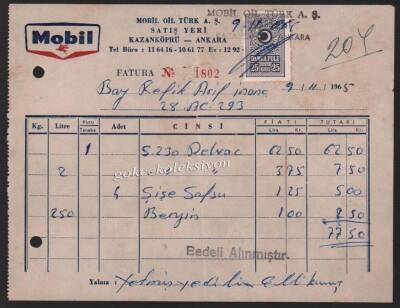 MOBİL OİL TÜRK A. Ş.
SATIŞ YERİ
KAZANKÖPRÜ — ANKARA
Tel Büro : 11 64 16 - 10 61 77 Ev : 12 92
Mobil
MOBİL OİL TÜRK A. Ş.
ANKARA
DAMGA PULU
25 25
204
FATURA № 1802
Bay Refik Arif
28 AC 293
9/11/1965
Kg. Litre Kutu Teneke Adet CİNSİ FİATI TUTARI
Lira Kr. Lira Kr.
1 S.230 Delvac 62 50 62 50
2 " 3 75 7 50
4 Şişe Safsu 1 25 5 00
gokcekoleksiyon
250 Benzin 1 00 2 50
77 50
Bedeli Alınmıştır.
Yalnız yetmiş yedi lira elli kuruş